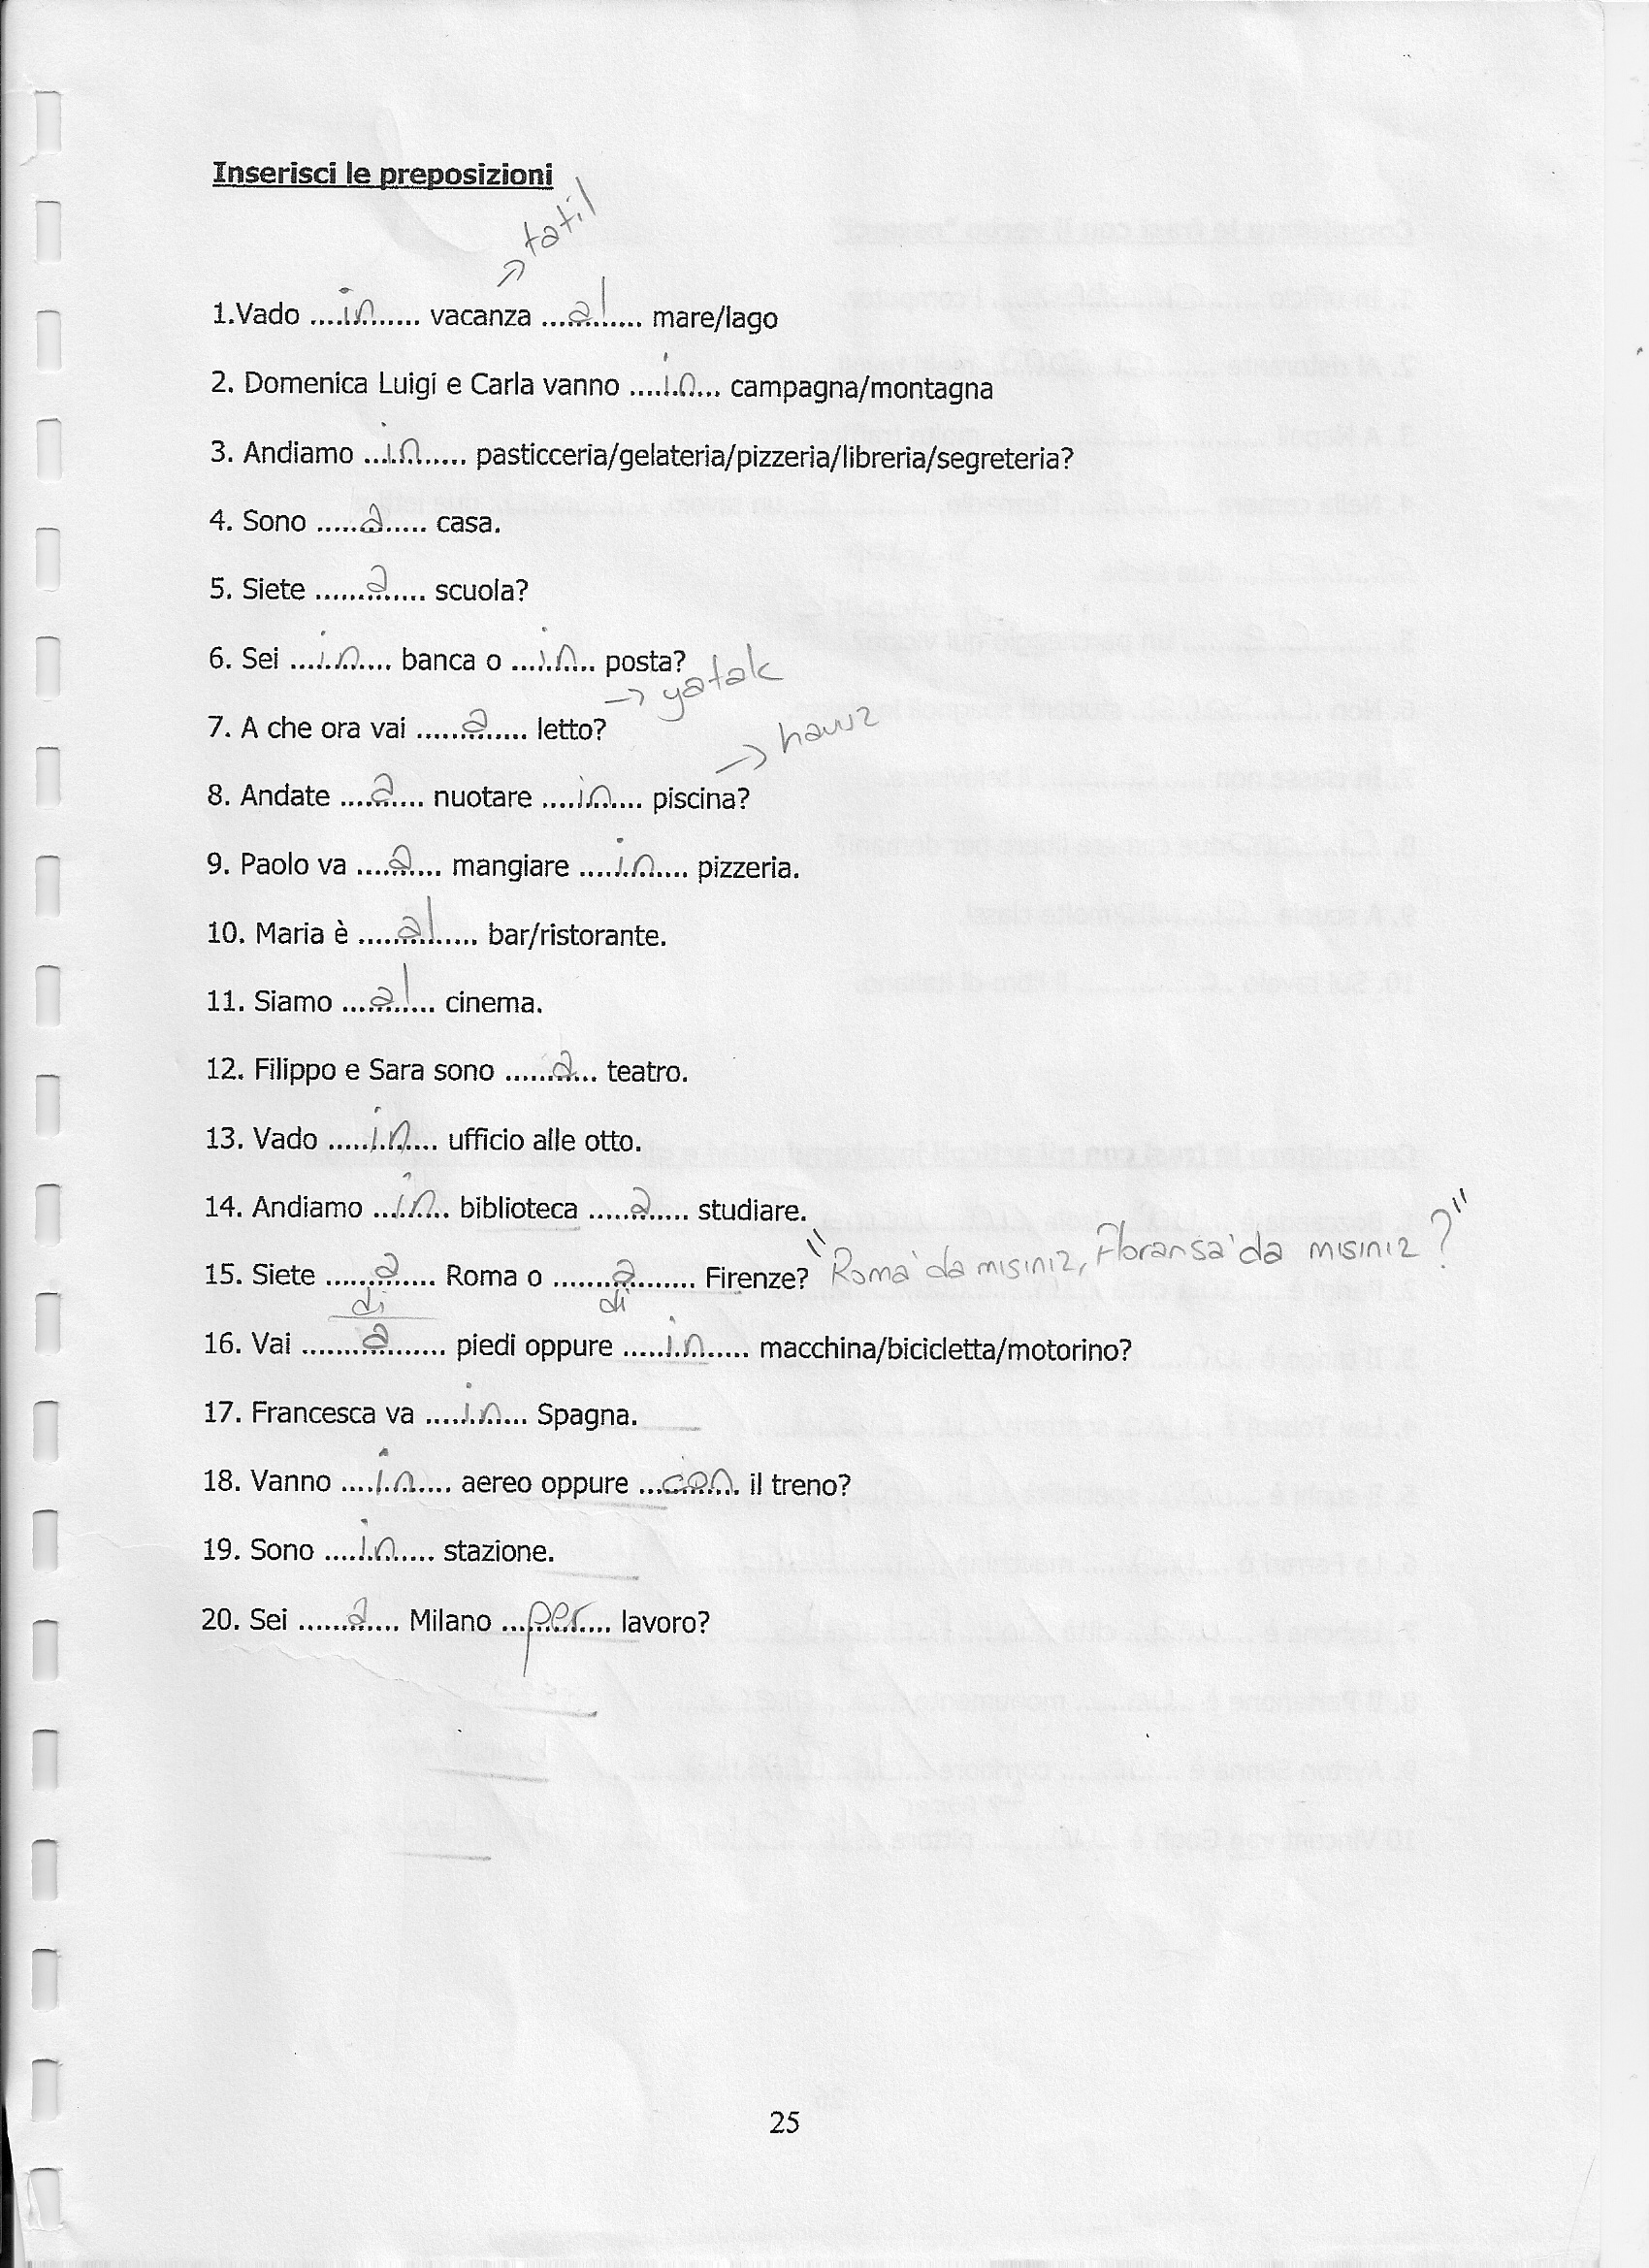 Inserisci le preposizioni
→ tatil
1.Vado ....in....... vacanza ....al....... mare/lago
2. Domenica Luigi e Carla vanno ....in... campagna/montagna
3. Andiamo ...in...... pasticceria/gelateria/pizzeria/libreria/segreteria?
4. Sono ......a...... casa.
5. Siete ......a...... scuola?
6. Sei ....in..... banca o ....in... posta?
→ yatak
7. A che ora vai ......a..... letto?
→ havuz
8. Andate ....a.... nuotare ....in.... piscina?
9. Paolo va ....a.... mangiare ....in..... pizzeria.
10. Maria è .....al..... bar/ristorante.
11. Siamo ...al.... cinema.
12. Filippo e Sara sono .....a... teatro.
13. Vado .....in.... ufficio alle otto.
14. Andiamo ...in... biblioteca .....a..... studiare.
15. Siete ......a...... Roma o .......a........ Firenze? "Roma'da mısınız, Floransa'da mısınız?"
di di
16. Vai ........a........ piedi oppure .....in...... macchina/bicicletta/motorino?
17. Francesca va ....in..... Spagna.
18. Vanno ....in..... aereo oppure ...con... il treno?
19. Sono ....in...... stazione.
20. Sei ......a..... Milano ...per.... lavoro?
25